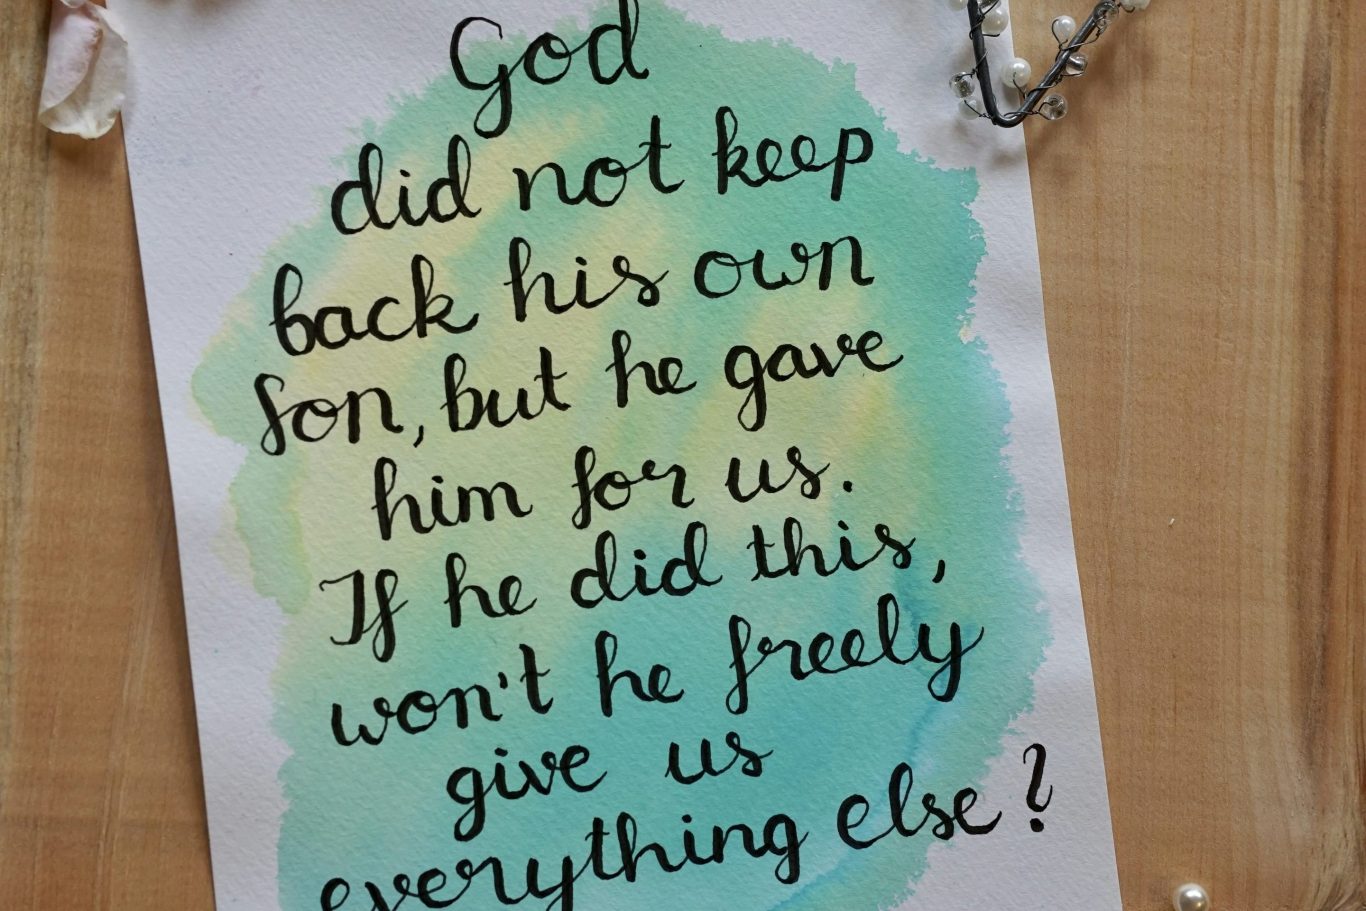 God
did not keep
back his own
son, but he gave
him for us.
If he did this,
won't he freely
give us
everything else?